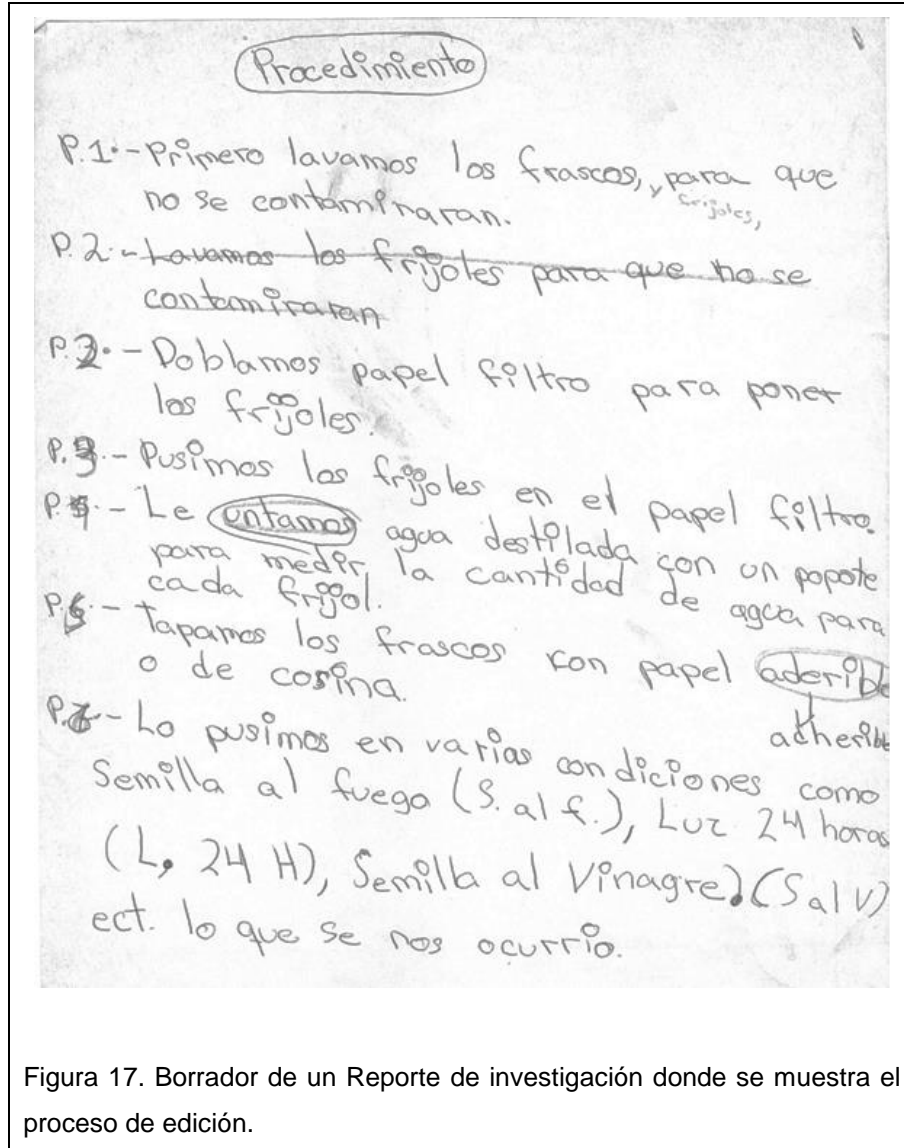 Procedimiento
P.1.-Primero lavamos los frascos, para que
frijoles,
no se contaminaran.
P.2.-Lavamos los frijoles para que no se
contaminaran
P.2.- Doblamos papel filtro para poner
los frijoles.
P.3.- Pusimos los frijoles en el papel filtro.
P.4.- Le untamos agua destilada con un popote
para medir la cantidad de agua para
cada frijol.
P.5.- Tapamos los frascos con papel aderible
o de cosina.
adherible
P.6- Lo pusimos en varias condiciones como
Semilla al fuego (S. al f.), Luz 24 horas
(L, 24 H), Semilla al Vinagre.(S al V)
ect. lo que se nos ocurrio.
Figura 17. Borrador de un Reporte de investigación donde se muestra el
proceso de edición.